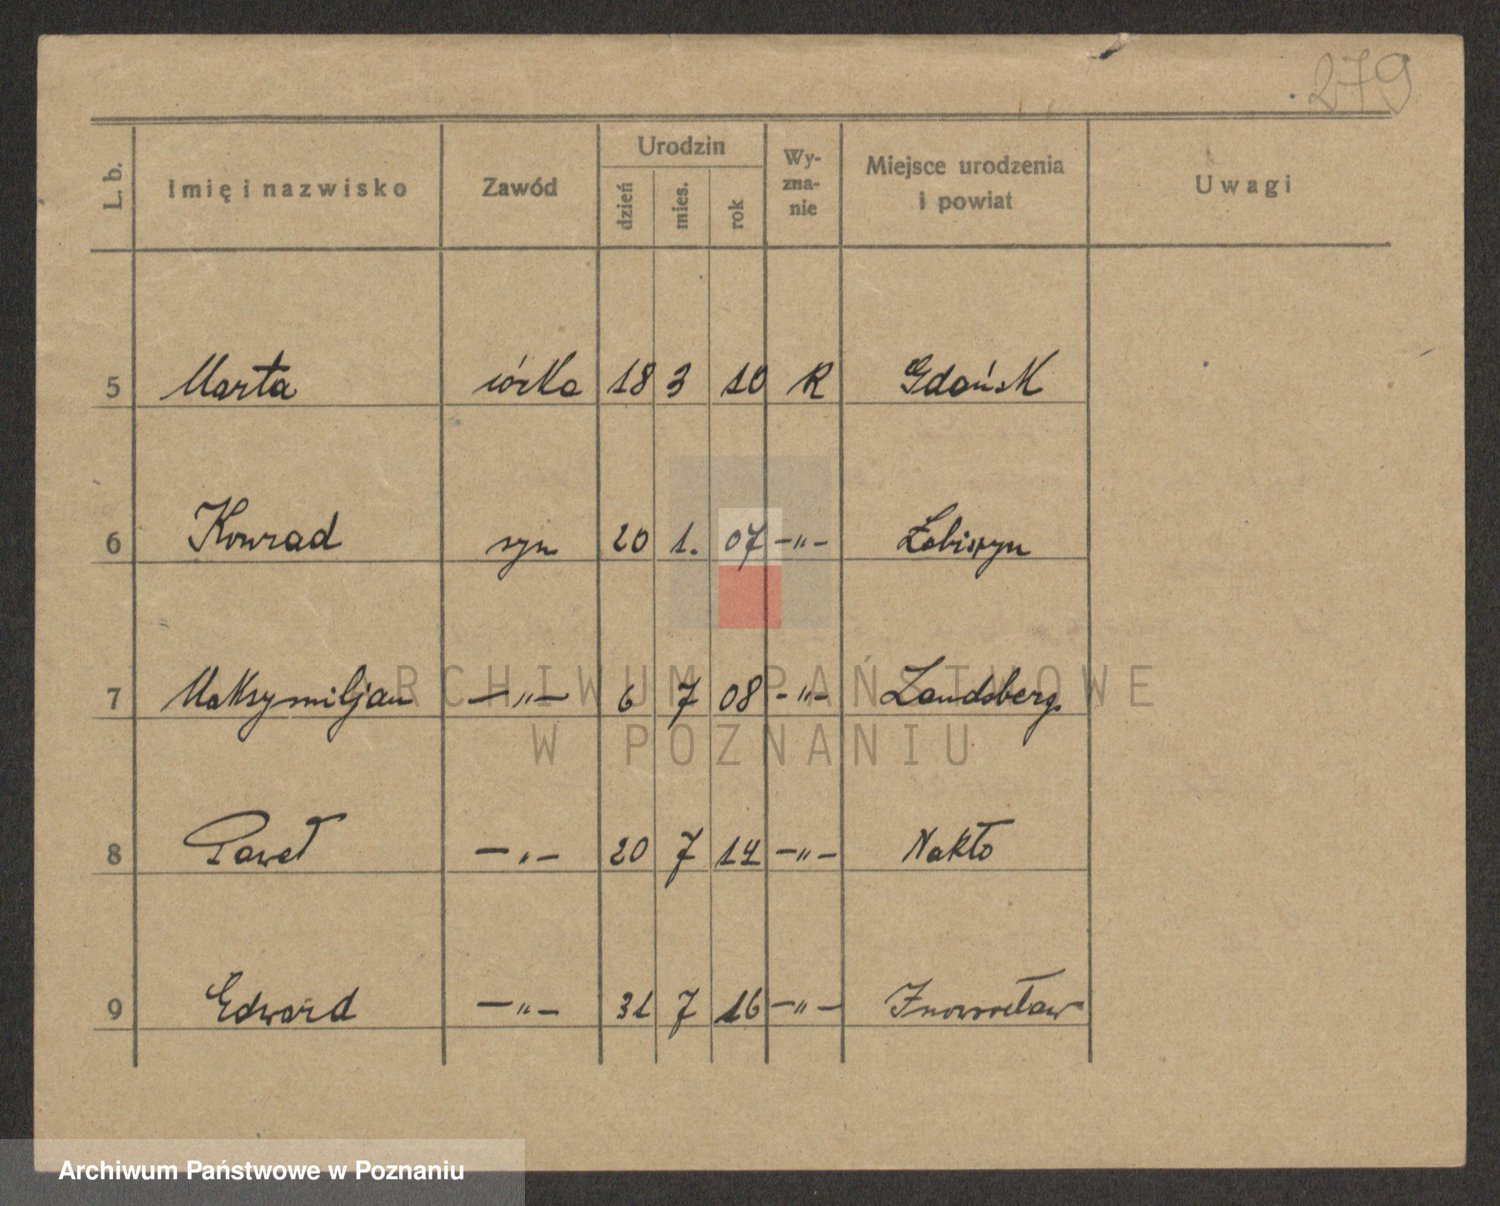 279
L. b. Imię i nazwisko Zawód Urodzin dzień mies. rok Wy-zna-nie Miejsce urodzenia i powiat Uwagi
5 Marta córka 18 3 10 R Gdańsk
6 Konrad syn 20 1. 07 -"- Łabiszyn
7 Maksymiljan -"- 6 7 08 -"- Landsberg
ARCHIWUM PAŃSTWOWE
W POZNANIU
8 Paweł -"- 20 7 14 -"- Nakło
9 Edward -"- 31 7 16 -"- Inowrocław
Archiwum Państwowe w Poznaniu